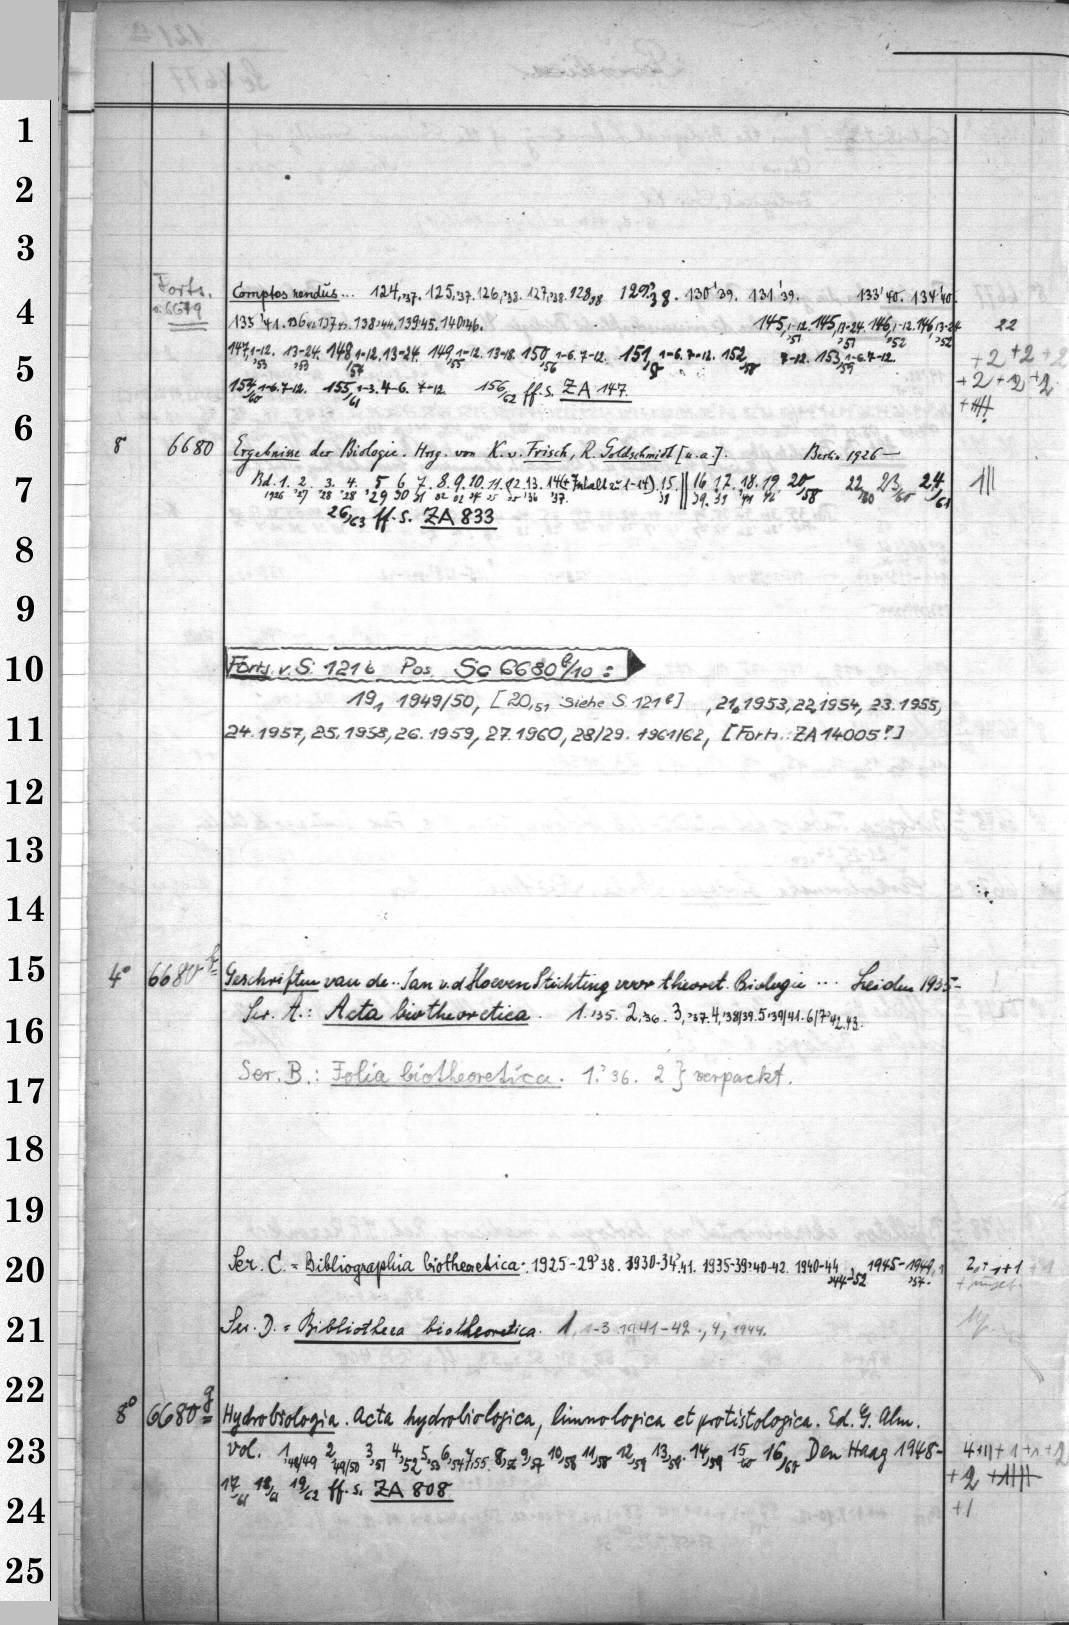 1
2
3
4
5
6
7
8
9
10
11
12
13
14
15
16
17
18
19
20
21
22
23
24
25
Forts.
v. 6679
Comptes rendus... 124,'37. 125,'37. 126,'38. 127,'38. 128,'38 129,'38. 130'39. 131'39. 133'40. 134'40.
135'41. 138'44. 139 45. 140 46. 145,1-12. 145,13-24. 146,1-12. 146,13-24 22
147,1-12. 13-24. 148,1-12. 13-24. 149,1-12. 13-18. 150,1-6. 7-12. 151,1-6. 7-12. 152 7-12. 153,1-6. 7-12. +2 +2 +2
154,1-6. 7-12. 155,1-3. 4-6. 7-12 156/62 ff. s. ZA 147. +2 +2 +2
8° 6680 Ergebnisse der Biologie. Hrsg. von K. v. Frisch, R. Goldschmidt [u. a.]. Berlin 1926—
Bd. 1. 2. 3. 4. 5 6 7. 8. 9. 10. 11. 12. 13. 14 (+ Inhalt zu 1-14). 15. 16 17. 18. 19 20/58 22/60 23/60 24/61
26/63 ff. s. ZA 833
Forts. v. S. 121 b Pos. Sc 6680 b/10 :
19, 1949/50, [20,51 siehe S. 121 b] , 21, 1953, 22, 1954, 23. 1955,
24. 1957, 25. 1958, 26. 1959, 27. 1960, 28/29. 1961/62, [Forts.: ZA 14005?]
4° 6680 Geschriften van de.. Jan v. d. Hoeven Stichting voor theoret. Biologie ... Leiden 1935-
Ser. A.: Acta biotheoretica. 1.'35. 2,'36. 3,'37. 4,'38/39. 5'39/41. 6/7'42.43.
Ser. B.: Folia biotheoretica. 1.'36. 2 } verpackt.
Ser. C. = Bibliographia biotheoretica. 1925-29'38. 1930-34'41. 1935-39'40-42. 1940-44,'44-'52 1945-1949,'54.
Ser. D. = Bibliotheca biotheoretica. 1, 1-3 1941-42., 4, 1944.
8° 6680 g Hydrobiologia. Acta hydrobiologica, limnologica et protistologica. Ed. G. Alm.
vol. 1,48/49 2,49/50 3,51 4,52 5,53 6,54 7,55. 8,56 9,57 10/58 11/58 12/59 13/59 14/59 15/60 16/60 Den Haag 1948-
17/61 18/61 19/62 ff. s. ZA 808
+1